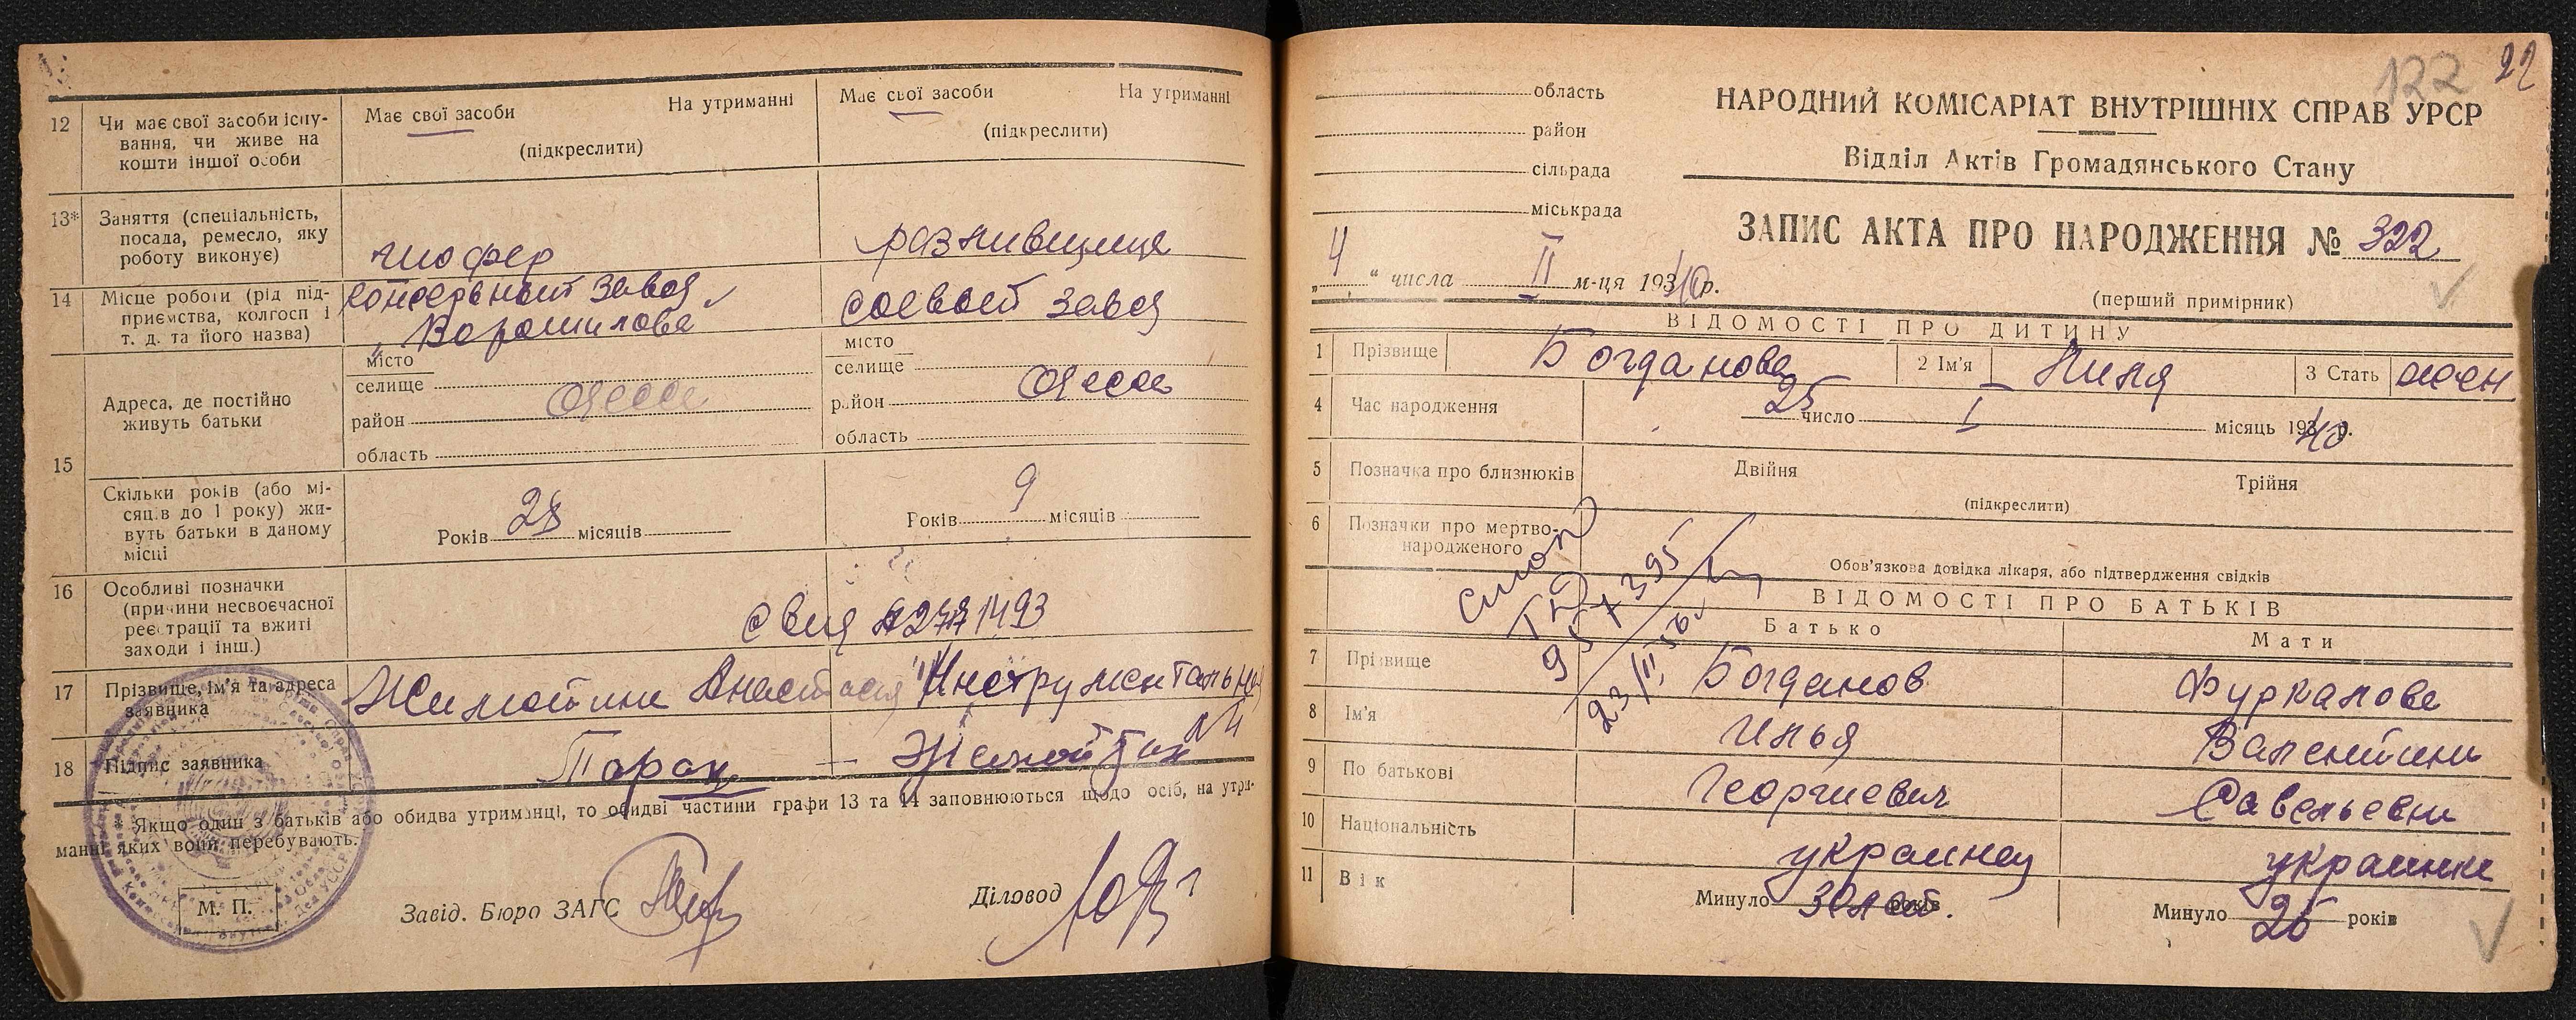 12 Чи має свої засоби існу-
вання, чи живе на
кошти іншої особи
Має свої засоби На утриманні
(підкреслити)
Має свої засоби На утриманні
(підкреслити)
13* Заняття (спеціальність,
посада, ремесло, яку
роботу виконує)
шофер
разливщица
14 Місце роботи (рід під-
приємства, колгосп і
т. д. та його назва)
консервный завод
"Ворошилова
соевый завод
15 Адреса, де постійно
живуть батьки
місто
селище
район Одесса
область
місто
селище
район Одесса
область
Скільки років (або мі-
сяців до 1 року) жи-
вуть батьки в даному
місці
Років 28 місяців
Років 9 місяців
16 Особливі позначки
(причини несвоєчасної
реєстрації та вжиті
заходи і інш.)
17 Прізвище, ім'я та адреса
заявника
Анастасия Инструментальная
N 4
18 Підпис заявника
* Якщо один з батьків або обидва утриманці, то обидві частини графи 13 та 14 заповнюються щодо осіб, на утри-
манні яких вони перебувають.
М. П.
Завід. Бюро ЗАГС
Діловод
122 22
область
район
сільрада
міськрада
НАРОДНИЙ КОМІСАРІАТ ВНУТРІШНІХ СПРАВ УРСР
Відділ Актів Громадянського Стану
ЗАПИС АКТА ПРО НАРОДЖЕННЯ № 322
„4“ числа II м-ця 1940 р.
(перший примірник)
ВІДОМОСТІ ПРО ДИТИНУ
1 Прізвище Богданова 2 Ім'я Лиля 3 Стать жен
4 Час народження 25 число I місяць 1940 р.
5 Позначка про близнюків Двійня Трійня
(підкреслити)
6 Позначки про мертво-
народженого
Обов'язкова довідка лікаря, або підтвердження свідків
ВІДОМОСТІ ПРО БАТЬКІВ
Батько Мати
7 Прізвище Богданов Фуркалова
8 Ім'я Илья Валентина
9 По батькові Георгиевич Савельевна
10 Національність украинец украинка
11 Вік Минуло 30 лет. Минуло 26 років